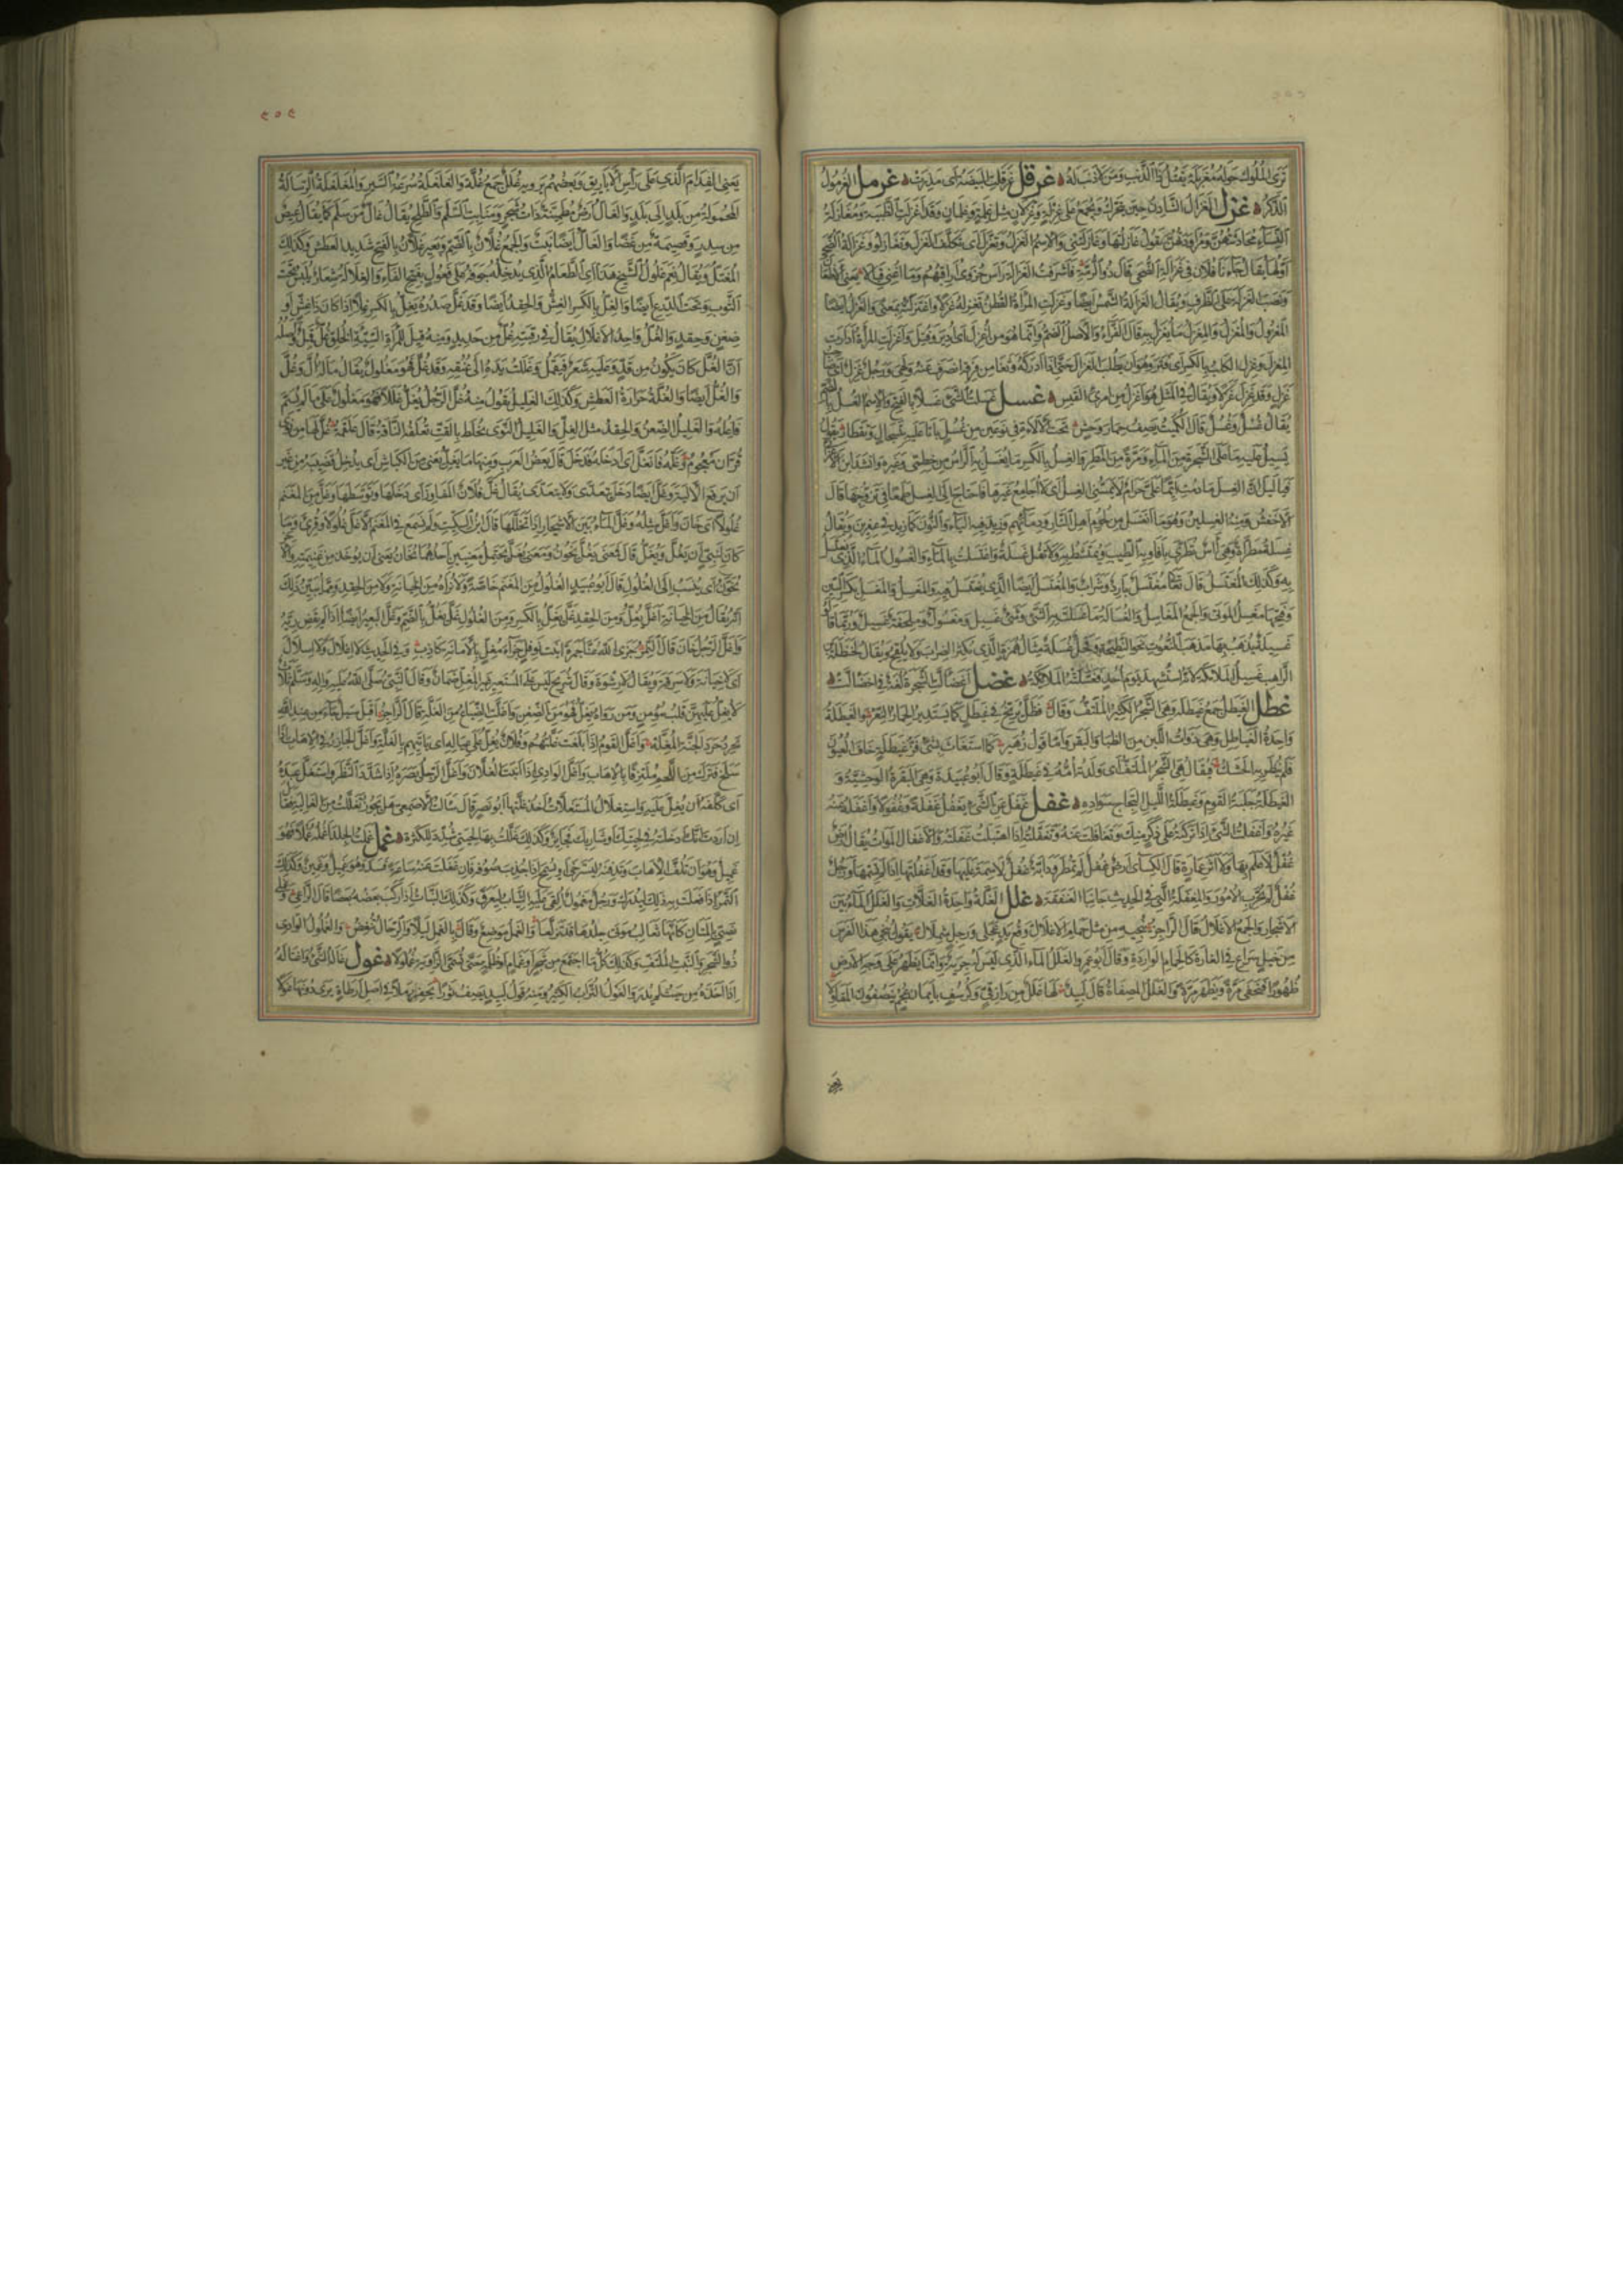 ترى الملوك حوله مغربله يقتل ذا الذنب ومن لا ذنب له غرقل غرقلت البيضة اى مذرت غرمل الغرمول
الذكر غزل الغزال الشادن حين يتحرك ويجمع على غزلة وغزلان مثل غلمة وغلمان وقد اغزلت الظبية ومغازلة
النساء محادثتهن ومراودتهن تقول غازلتها وغازلتنى والاسم الغزل وتغزل اى تكلف الغزل وتغازلوا وغزالة الضحى
اولها يقال جاءنا فلان فى غزالة الضحى قال ذو الرمة فاشرفت الغزالة راس حزوى اراقبهم وما اغنى قبالا يعنى
ونصب الغزالة على الظرف ويقال الغزالة الشمس ايضا وغزلت المراة القطن تغزله غزلا واغتزلته بمعنى والغزل ايضا
المغزول والمغزل والمغزل ما يغزل به قال الفراء والاصل الضم وانما هو من اغزل اى ادير وفتل واغزلت المراة ادارت
المغزل وغزل الكلب بالكسر اى فتر وهو ان يطلب الغزال حتى اذا ادركه وثغا من فرقه انصرف عنه ولهى ورجل غزل اى صاحب
غزل وقد غزل غزلا ويقال فى المثل هو اغزل من امرئ القيس غسل غسلت الشئ غسلا بالفتح والاسم الغسل بالضم
يقال غسل وغسل قال الكميت يصف حمار وحش تحت الالاءة فى نوعين من غسل باتا عليه بتسجال وتقطار يقول
يسيل عليه ما على الشجرة من الماء ومرة من المطر والغسل بالكسر ما يغسل به الراس من خطمى وغيره وانشد ابن الاعرابى
فيا ليل ان الغسل ما دمت ايما على حرام لا يمسنى الغسل اى لا اجامع غيرها فاحتاج الى الغسل طمعا فى تزوجها قال
الاخفش ومنه الغسلين وهو ما انغسل من لحوم اهل النار ودمائهم وزيد فيه الياء والنون كما زيد فى عفرين ويقال
غسلة مطراة وهى آس يطرى بافاويه الطيب ويمتشط به ولا تقل غسلة واغتسلت بالماء والغسول الماء الذى يغتسل
به وكذلك المغتسل قال تعالى مغتسل بارد وشراب والمغتسل ايضا الذى يغتسل فيه والمغسل والمغسل بكسر السين
وفتحها مغسل الموتى والجمع المغاسل والغسالة ما غسلت به الشئ وشئ غسيل ومغسول وملحفة غسيل وربما قالوا
غسيلة يذهب بها مذهب النعوت نحو النطيحة وفحل غسلة مثال همزة الذى يكثر الضراب ولا يلقح ويقال لحنظلة بن
الراهب غسيل الملائكة لانه استشهد يوم احد فغسلته الملائكة غضل اغضالت الشجرة لغة فى اخضالت
غطل الغيطل جمع غيطلة وهى الشجر الكثير الملتف وقال فظل يرنح فى غيطل كما يستدير الحمار النعر والغيطلة
واحدة الغياطل وهى ذوات اللبن من الظباء والبقر واما قول زهير كما استغاث بسئ فز غيطلة خاف العيون
فلم ينظر به الحشك فيقال هى الشجر الملتف اى ولدته امه فى غيطلة وقال ابو عبيدة وهى البقرة الوحشية و
الغيطلة جلبة القوم وغيطلة الليل التجاج سواده غفل غفل عن الشئ يغفل غفلة وغفولا واغفله عنه
غيره واغفلت الشئ اذا تركته على ذكر منك وتغافلت عنه وتغفلته اذا اهتبلت غفلته والاغفال الموات يقال ارض
غفل لا علم بها ولا اثر عمارة قال الكسائى ارض غفل لم تمطر ودابة غفل لا سمة عليها وقد اغفلتها اذا لم تسمها ورجل
غفل لم يجرب الامور والمغفلة التى فى الحديث جانبا العنفقة غلل الغلة واحدة الغلات والغلل الماء بين
الاشجار والجمع الاغلال قال الراجز ينجيه من مثل حمام الاغلال وقع يد عجلى ورجل شملال يقول ينجى هذا الفرس
من خيل سراع فى الغارة كالحمام الواردة وقال ابو عمرو الغلل الماء الذى ليس له جرية وانما يظهر على وجه الارض
ظهورا فيخفى مرة ويظهر مرة والغلل المصفاة قال لبيد لها غلل من رازقى وكرسف بايمان عجم ينصفون المقاولا
يعنى
٤٥٤
يعنى الفدام الذى على راس الاباريق وبعضهم يرويه غلل جمع غلة والغلغلة سرعة السير والمغلغلة الرسالة
المحمولة من بلد الى بلد والغال ارض مطمئنة ذات شجر ومنابت السلم والطلح يقال غال من سلم كما يقال عيص
من سدر وقصيمة من غضا والغال ايضا نبت والجمع غلان بالضم وبعير غلان بالفتح شديد العطش وكذلك
المغتل ويقال نعم غلول الشيخ هذا اى الطعام الذى يدخله جوفه على فعول بفتح الفاء والغلالة شعار يلبس تحت
الثوب وتحت الدرع ايضا والغل بالكسر الغش والحقد ايضا وقد غل صدره يغل بالكسر غلا اذا كان ذا غش او
ضغن وحقد والغل واحد الاغلال يقال فى رقبته غل من حديد ومنه قيل للمراة السيئة الخلق غل قمل واصله
ان الغل كان يكون من قد وعليه شعر فيقمل وغللت يده الى عنقه وقد غل فهو مغلول يقال ما له ال وغل
والغل ايضا والغلة حرارة العطش وكذلك الغليل يقول منه غل الرجل يغل غللا فهو مغلول على ما لم يسم
فاعله والغليل الضغن والحقد مثل الغل والغليل النوى يخلط بالقت تعلفه الناقة قال علقمة غل لها من نوى
قران معجوم وغله فانغل اى ادخله فدخل قال بعض العرب ومنها ما يغل يعنى من الكباش اى يدخل قضيبه من غير
ان يرفع الالية وغل ايضا دخل يتعدى ولا يتعدى يقال غل فلان المفاوز اى دخلها وتوسطها وغل من المغنم
غلولا اى خان واغل مثله وغل الماء بين الاشجار اذا تخللها قال ابن السكيت ولم نسمع فى المغنم الا غل غلولا وقرئ وما
كان لنبى ان يغل ويغل قال فمعنى يغل يخون ومعنى يغل يحتمل معنيين احدهما يخان يعنى ان يوخذ من غنيمته والآخر
يخون اى ينسب الى الغلول قال ابو عبيد الغلول من المغنم خاصة ولا نراه من الخيانة ولا من الحقد ومما يبين ذلك
انه يقال من الخيانة اغل يغل ومن الحقد غل يغل بالكسر ومن الغلول غل يغل بالضم وغل البعير ايضا اذا لم يقض ريه
واغل الرجل خان قال النمر جزى الله عنا جمرة ابنة نوفل جزاء مغل بالامانة كاذب وفى الحديث لا اغلال ولا اسلال
اى لا خيانة ولا سرقة ويقال لا رشوة وقال شريح ليس على المستعير غير المغل ضمان وقال النبى صلى الله عليه واله وسلم ثلاث
لا يغل عليهن قلب مؤمن ومن رواه يغل فهو من الضغن واغلت الضياع من الغلة قال الراجز اقبل سيل جاء من عند الله
يحرد حرد الجنة المغله واغل القوم اذا بلغت غلتهم وفلان يغل على عياله اى ياتيهم بالغلة واغل الجازر فى الاهاب اذا
سلخ فترك من اللحم ملتزقا بالاهاب واغل الوادى اذا انبت الغلان واغل الرجل بصره اذا شدد النظر واستغل عبده
اى كلفه ان يغل عليه واستغلال المستغلات اخذ غلتها ابو نصر قال سالت الاصمعى هل يجوز تغللت من الغالية فقال
ان اردت انك ادخلته فى لحيتك او شاربك فجائز وكذلك غللت بها لحيتى شدد للكثرة غمل غملت الجلد اغمله غملا فهو
غميل وهو ان تلف الاهاب وتدفنه ليسترخى او يسمح اذا جذب صوفه فان غفلت عنه ساعة فسد وهو غميل وغمين وكذلك
التمر اذا فعلت به ذلك ليدرك ورجل مغمول القى عليه الثياب ليعرق وكذلك النبات اذا ركب بعضه بعضا قال الراعى
ضبتى بالمتان كانها ثعالب موتى جلدها قد تزلعا والغمل موضع وقال بالغمل ليلا والرحال تنغض والغملول الوادى
ذو الشجر والنبت الملتف وكذلك كل ما اجتمع من شجر او غمام او ظلمة حتى تسمى الزاوية غملولا غول غاله الشئ واغتاله
اذا اخذه من حيث لم يدر والغول التراب الكثير ومنه قول لبيد يصف ثورا يحفر رملا فى اصل ارطاة يرى دونها غولا